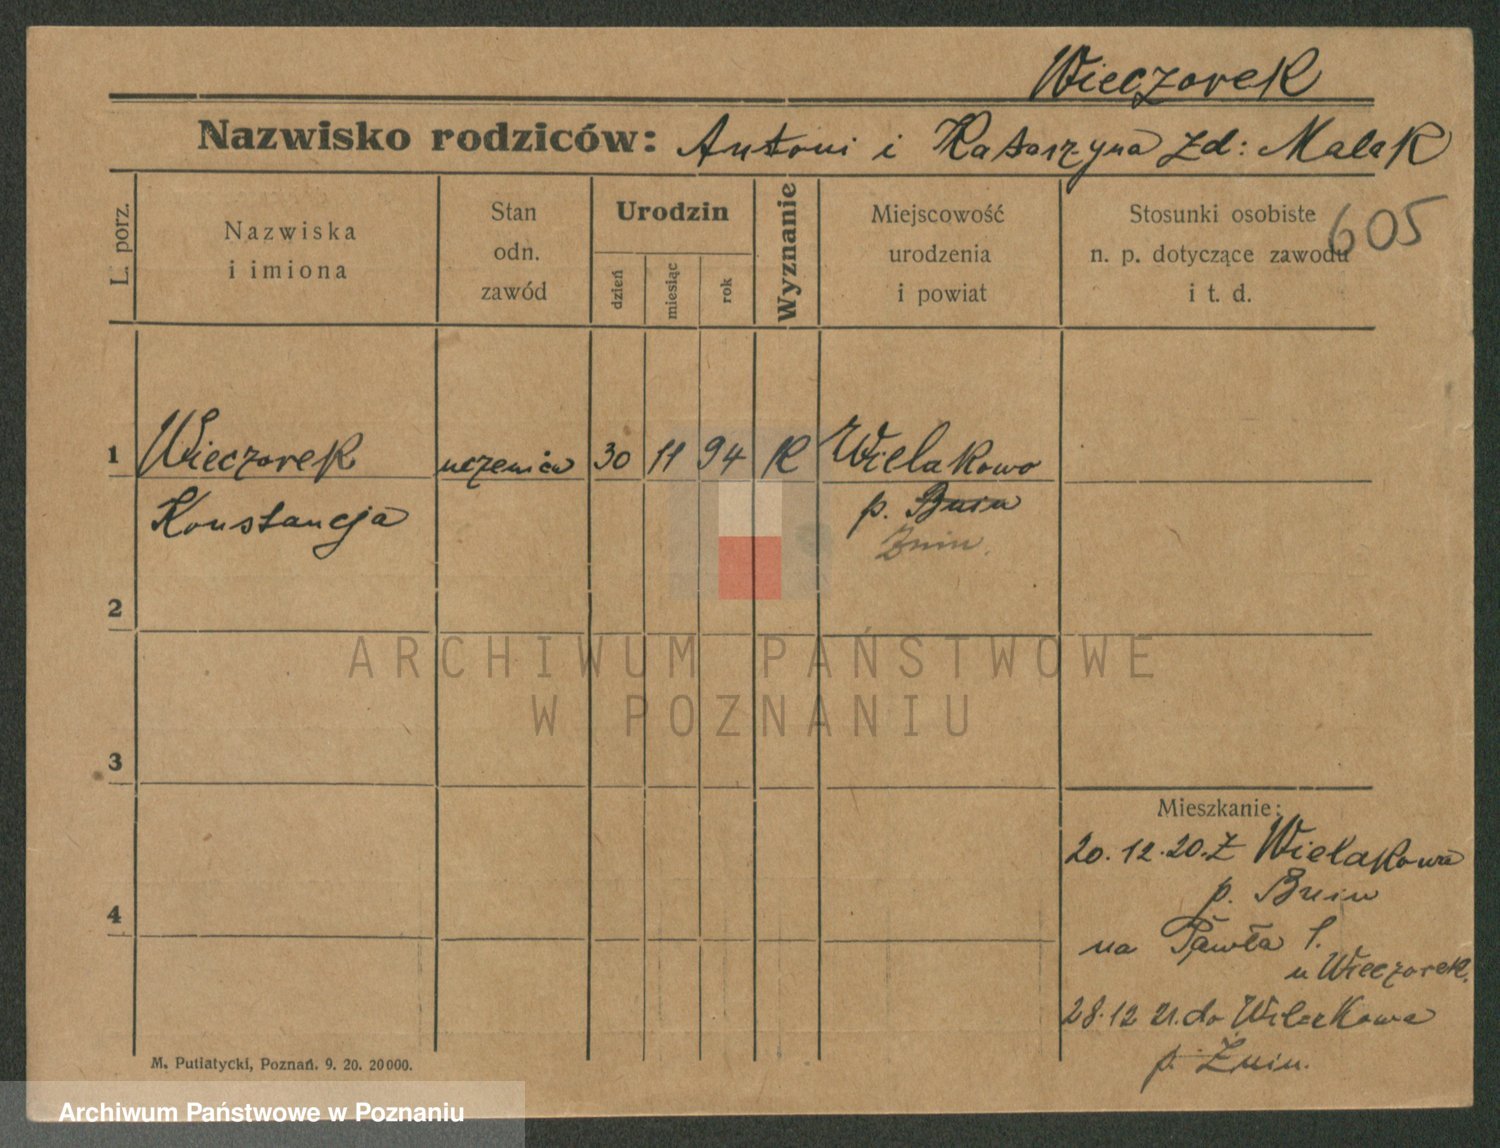 Wieczorek
Nazwisko rodziców: Antoni i Katarzyna zd: Malak
605
L. porz.
Nazwiska
i imiona
Stan
odn.
zawód
Urodzin
dzień
miesiąc
rok
Wyznanie
Miejscowość
urodzenia
i powiat
Stosunki osobiste
n. p. dotyczące zawodu
i t. d.
1 Wieczorek uczenica 30 11 94 K Wielakowo
Konstancja p. Bnin
Żnin.
2
3
4
ARCHIWUM PAŃSTWOWE
W POZNANIU
Mieszkanie:
20.12.20. Z Wielakowa
p. Bnin
na Pawła 1.
u Wieczorek.
28.12 21. do Wielakowa
p. Żnin.
M. Putiatycki, Poznań. 9. 20. 20000.
Archiwum Państwowe w Poznaniu